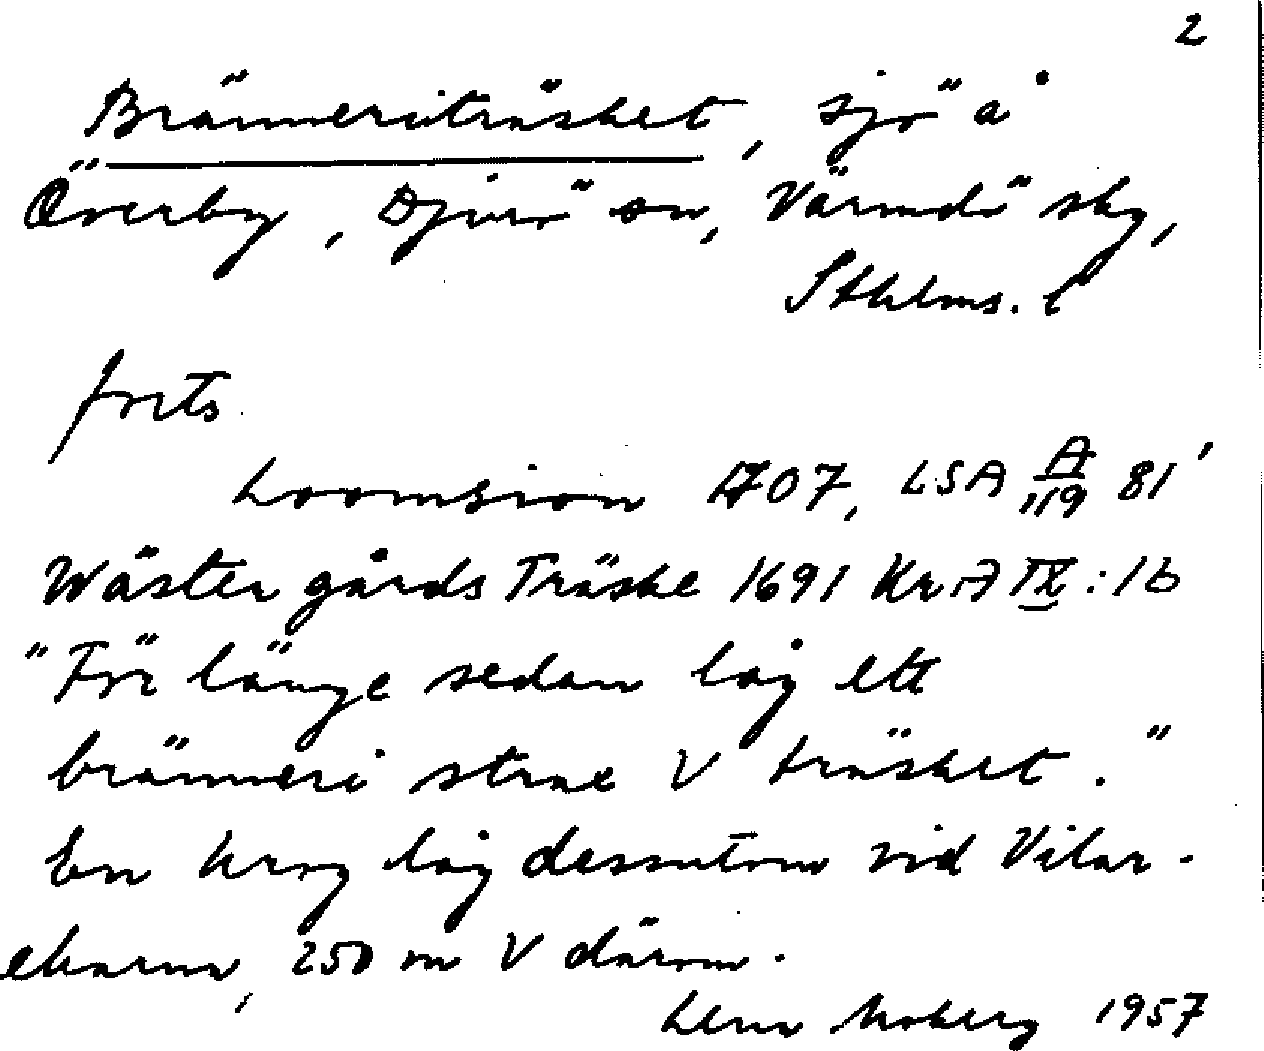 2
Bränneriträsket, sjö å
Överby, Djurö sn, Värmdö sky,
Sthlms. l
forts.
Loomsion 1707, LSA A/119 81'
Wäster gårds Träske 1691 Kr.A IX:16
"För länge sedan låg ett
bränneri strax V träsket."
En krog låg dessutom vid Vilar-
ekarna, 250 m V därom.
Lena Moberg 1957